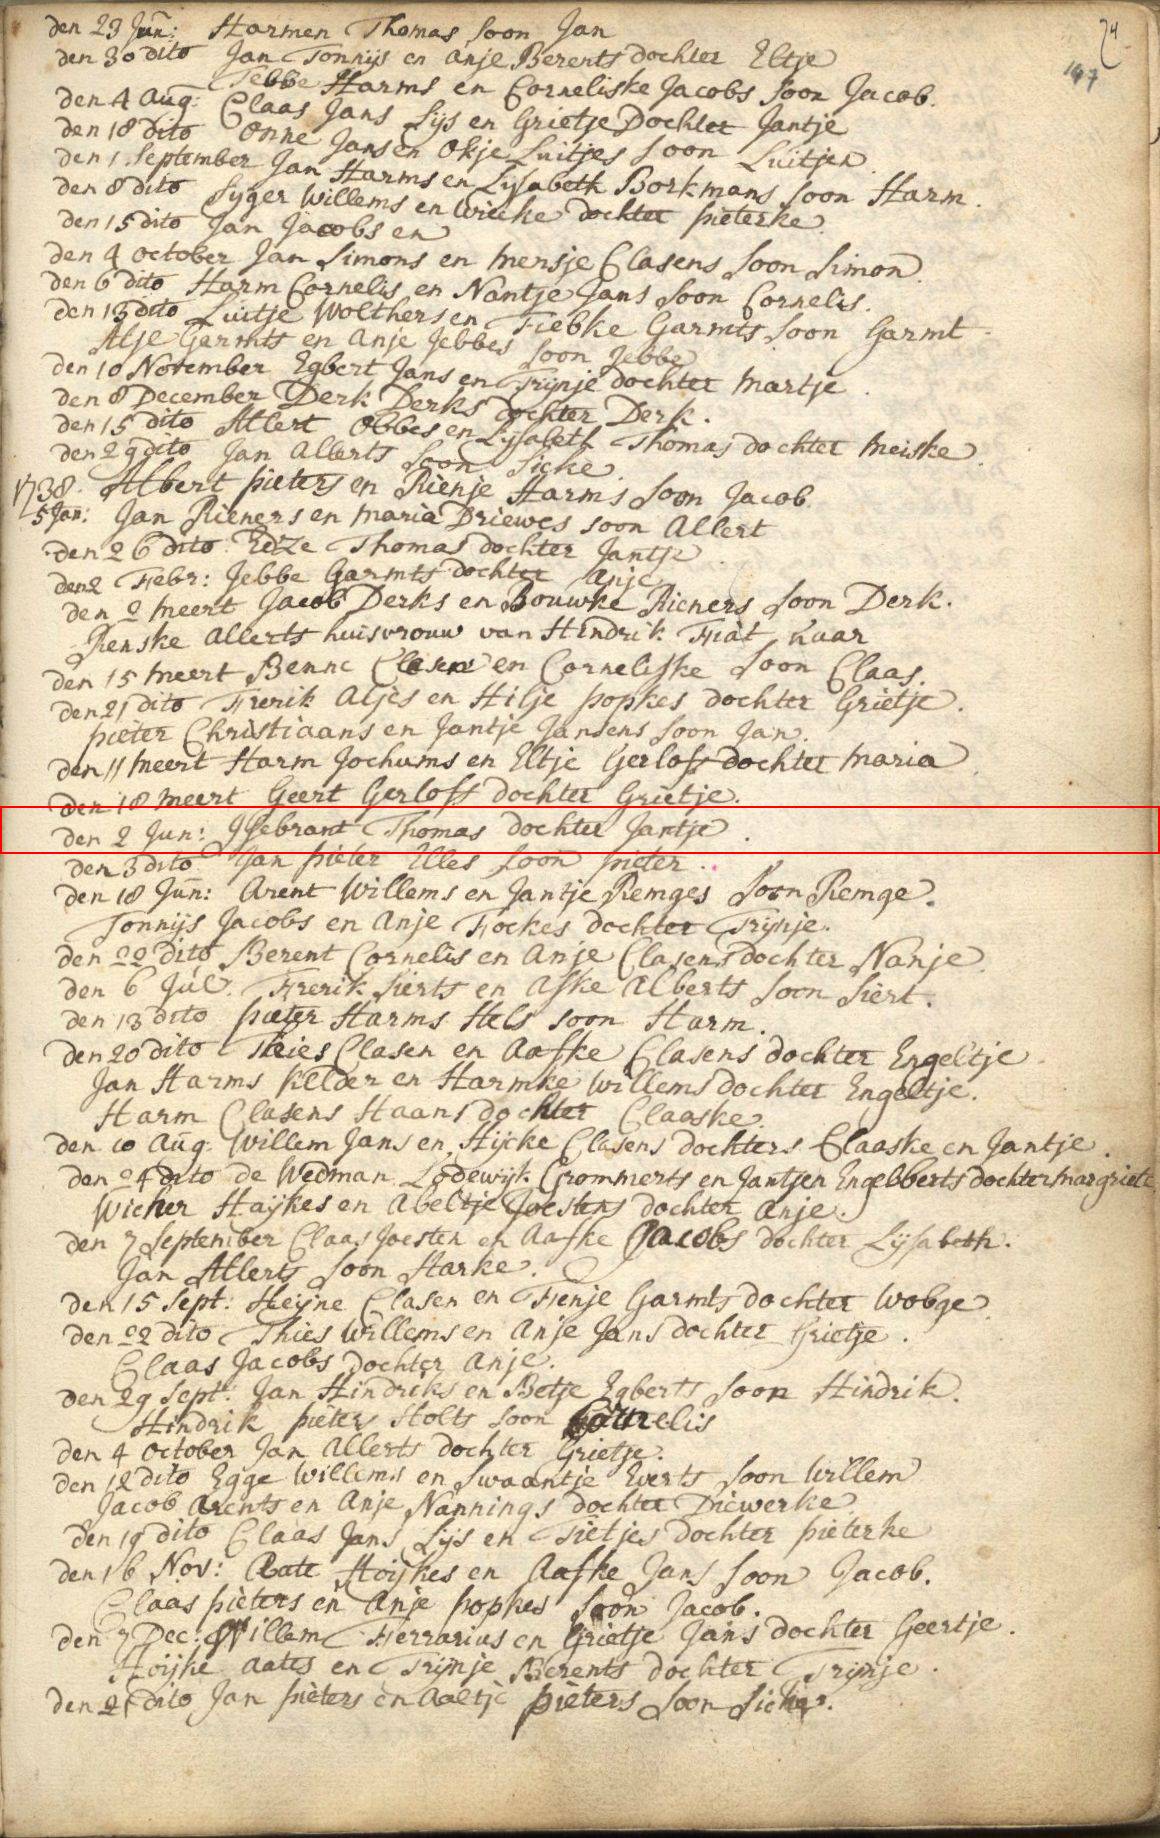 24
167
den 23 Jun: Harmen Thomas soon Jan
den 30 dito Jan Tonnijs en Anje Berents dochter Eltje
Tebbe Harms en Corneliske Jacobs soon Jacob.
den 4 Aug: Claas Jans Lijs en Grietje Dochter Jantje
den 18 dito Onne Jansen Okje Luitjes soon Luitjen
den 1. September Jan Harms en Lysabeth Borkmans soon Harm.
den 8 dito Syger Willems en Wiecke dochter pieterke
den 15 dito Jan Jacobs en
den 4 October Jan Simons en Mensje Clasens soon Simon
den 6 dito Harm Cornelis en Nantje Jans soon Cornelis.
den 13 dito Luitje Wolthers en Fiebke Garmts soon Garmt
Atje Garmts en Anje Jebbes soon Jebbe
den 10 November Egbert Jans en Trijnje dochter Martje
den 8 December Derk Derks dochter Derk.
den 15 dito Allert Obbes en Lysabeth Thomas dochter Meiske
den 29 dito Jan Allerts soon Sicke
1738. Albert pieters en Rienje Harms soon Jacob
5 Jan: Jan Rieners en Maria Driewes soon Allert
den 26 dito Edze Thomas dochter Jantje
den 2 Febr: Jebbe Garmts dochter Anje
den 2 Meert Jacob Derks en Bouwke Rieners soon Derk.
Renske Allerts huisvrouw van Hindrik
den 15 Meert Benne Clasen en Corneliske soon Claas.
den 21 dito Frerik Atjes en Hilje popkes dochter Grietje.
pieter Christiaans en Jantje Jansens soon Jan.
den 11 Meert Harm Jochums en Eltje Gerlofs dochter Maria
den 18 Meert Geert Gerlofs dochter Grietje.
den 2 Jun: IJsebrant Thomas dochter Jantje.
den 3 dito Jan pieter Elles soon pieter.
den 18 Jun: Arent Willems en Jantje Remges soon Remge.
Tonnijs Jacobs en Anje Fockes dochter Trijnje.
den 22 dito Berent Cornelis en Anje Clasens dochter Nanje
den 6 Jul. Frerik Sierts en Afke Alberts soon Siert.
den 13 dito pieter Harms Hels soon Harm.
den 20 dito Theies Clasen en Aafke Clasens dochter Engeltje
Jan Harms Kelder en Harmke Willems dochter Engeltje.
Harm Clasens Haans dochter Claaske.
den 10 Aug Willem Jans en Hijcke Clasens dochters Claaske en Jantje.
den 24 dito de Wedman Lodewijk Crommerts en Jantjen Engelberts dochter margriete
Wicher Haijkes en Abeltje Joestens dochter Anje.
den 7 September Claas Joesten en Aafke Jacobs dochter Lysabeth.
Jan Allerts soon Harke.
den 15 Sept: Heijne Clasen en Fienje Garmts dochter Wobge
den 22 dito Thies Willems en Anje Jans dochter Grietje.
Claas Jacobs dochter Anje.
den 29 Sept: Jan Hindriks en Betje Egberts soon Hindrik.
Hindrik pieters Holts soon Cornelis
den 4 October Jan Allerts dochter Grietje.
den 12 dito Egge Willems en Swaantje Everts soon Willem
Jacob Arents en Anje Nannings dochter Diewerke
den 19 dito Claas Jans Lijs en Tietjes dochter pieterke
den 16 Nov: Aate Hoijkes en Aafke Jans soon Jacob.
Claas pieters en Anje popkes soon Jacob.
den 7 Dec: Willem Ferrarius en Grietje Jans dochter Geertje.
Hoijke Aates en Trijnje Berents dochter Trijnje.
den 21 dito Jan pieters en Aaltje pieters soon